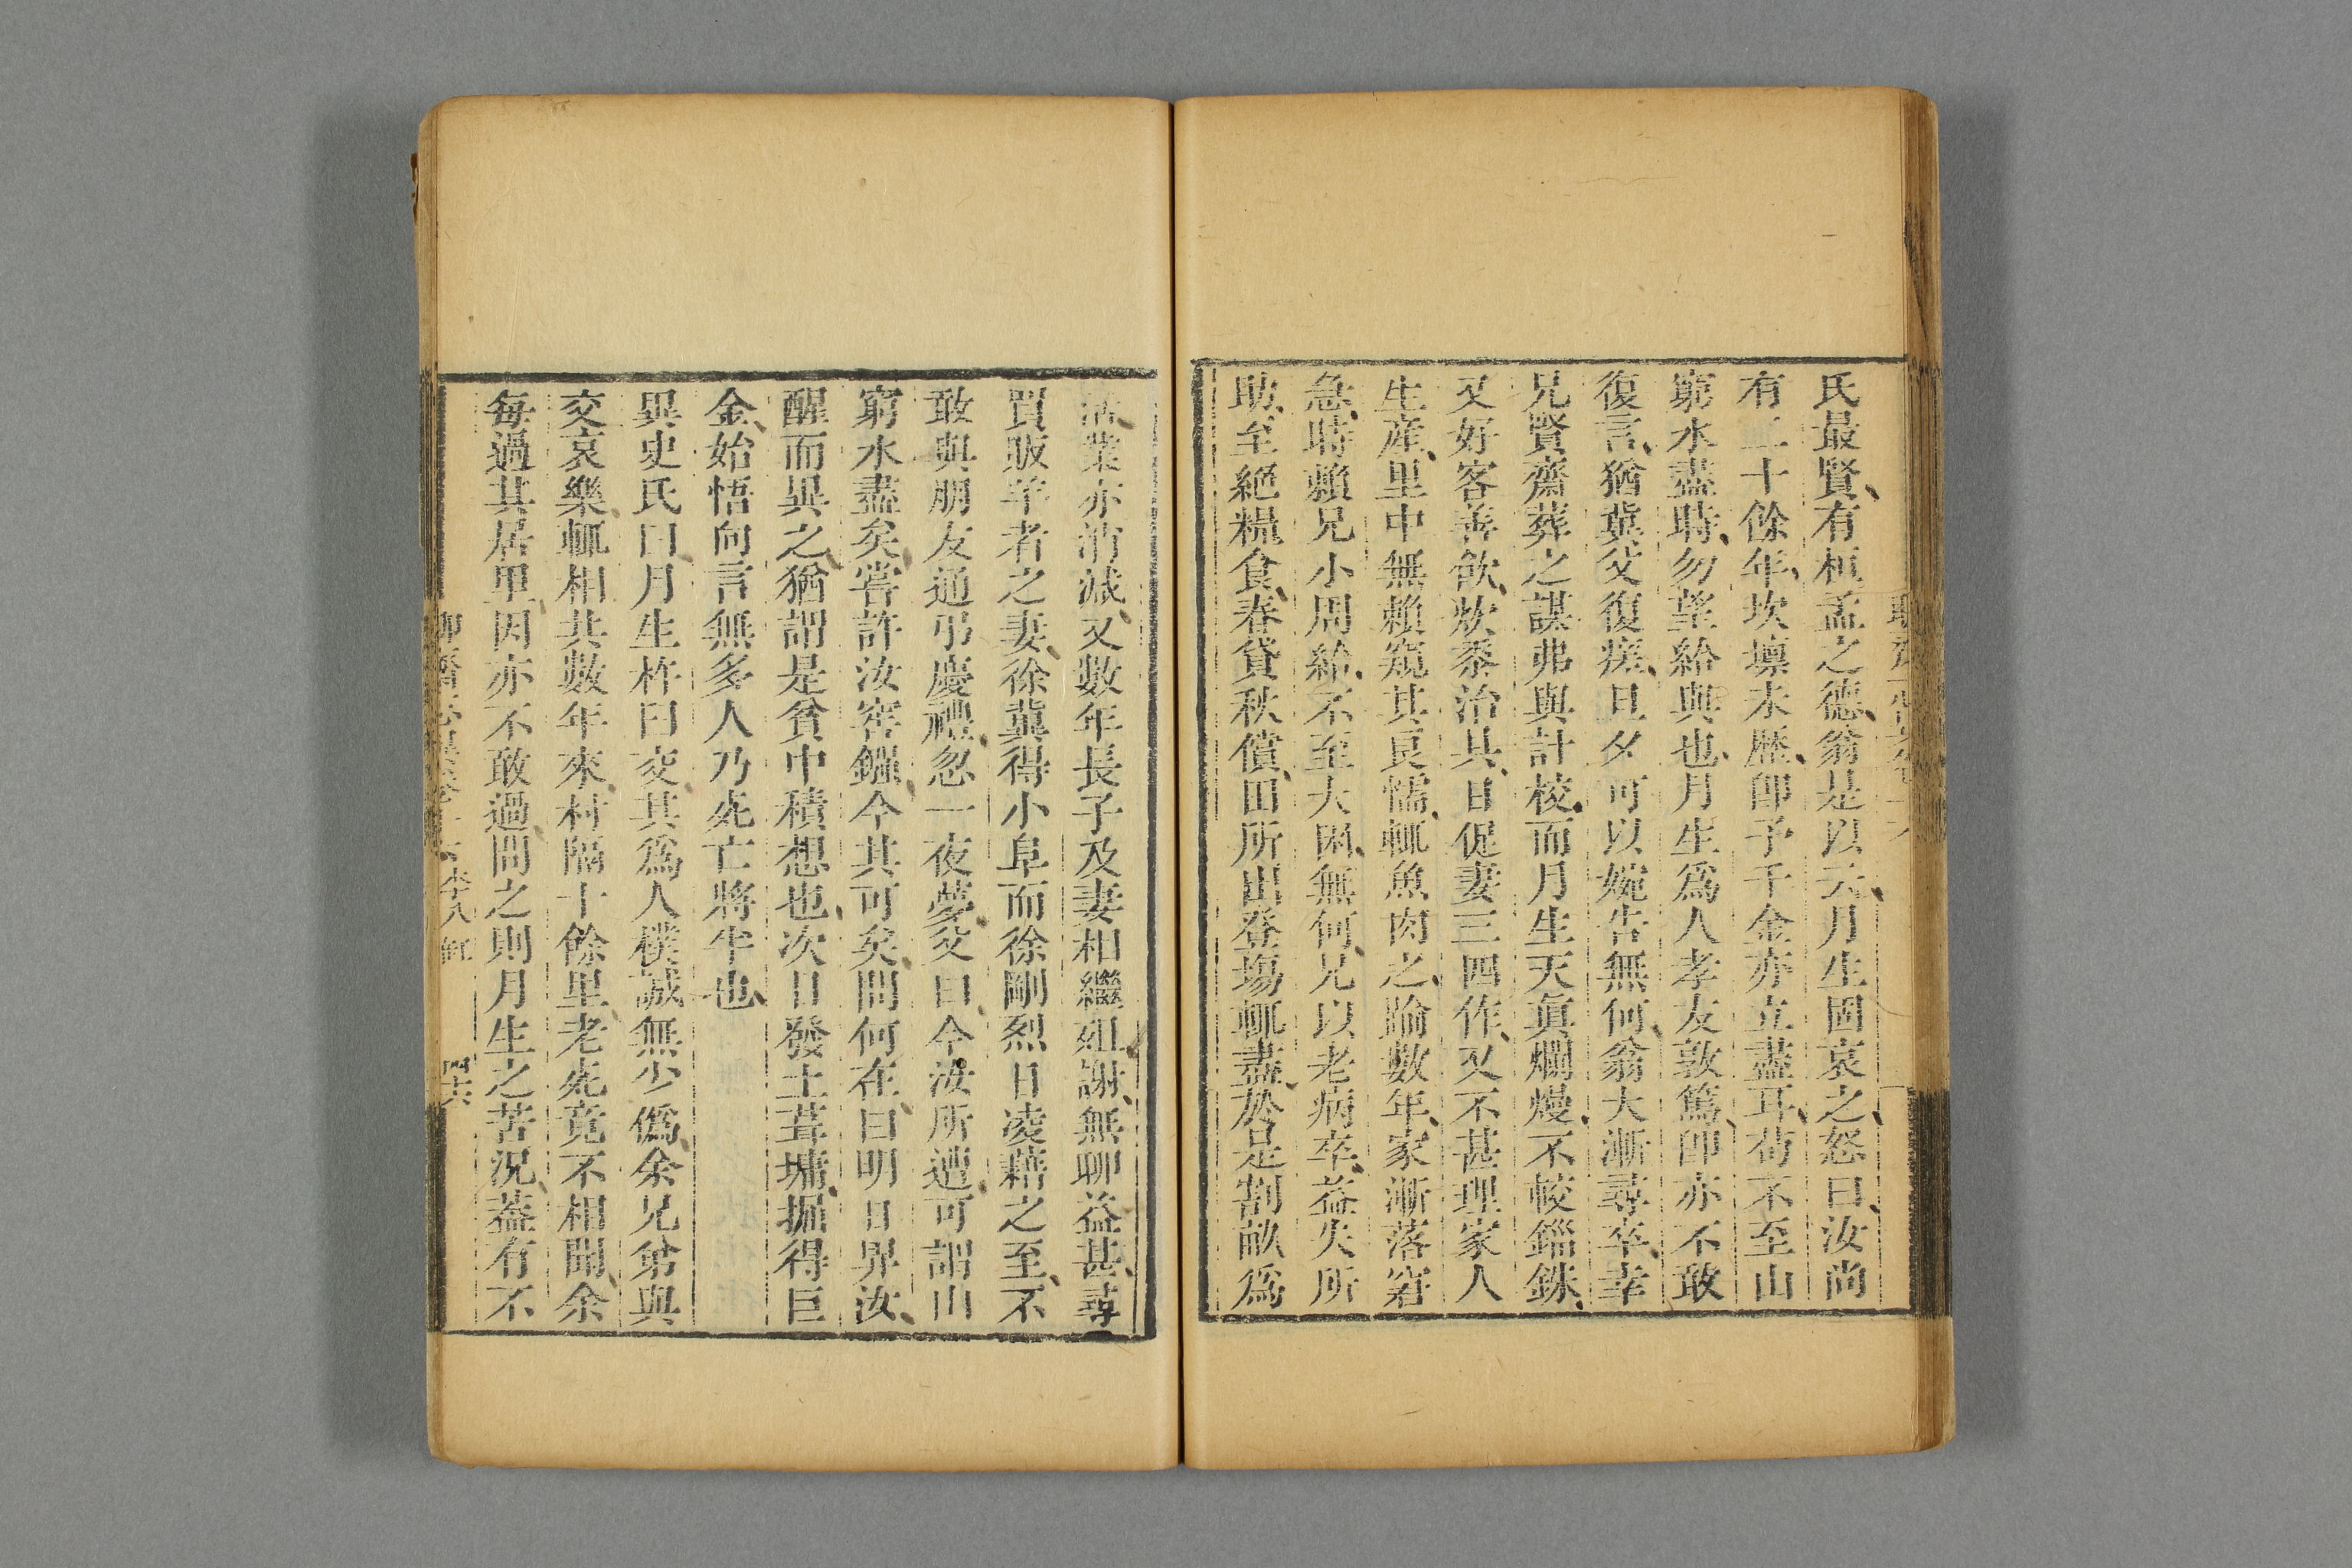 氏最賢、有桓孟之德、翁是以云、月生固哀之、怒曰、汝尚
有二十餘年、坎壈未歷、卽予千金亦立盡耳、苟不至山
窮水盡時、勿望給與也、月生爲人孝友敦篤、卽亦不敢
復言、猶冀父復瘥、旦夕可以婉告無何、翁大漸尋卒、幸
兄賢齋葬之謀弗與計校、而月生天眞爛熳、不較錙銖、
又好客善飲、炊黍治具、日促妻三四作、又不甚理家人
生産、里中無賴窺其良懦、輒魚肉之、踰數年、家漸落窘
急、時賴兄小周給、不至大困、無何、兄以老病卒、益失所
助、至絕糧食、春貸秋償、田所出登塲輒盡、於是割畝爲
活、業亦消減、又數年長子及妻相繼殂謝、無聊益甚、尋
買販羊者之妻、徐冀得小阜而徐剛烈日凌藉之至、不
敢與朋友通弔慶禮、忽一夜夢父曰、今汝所遭可謂山
窮水盡矣、嘗許汝窖鏹、今其可矣、問何在、曰明日畀汝、
醒而異之、猶謂是貧中積想也、次日發土葺墉、掘得巨
金、始悟向言無多人乃死亡將半也、
異史氏曰、月生杵臼交其爲人樸誠無少僞、余兄弟與
交、哀樂輒相共數年來、村隔十餘里、老死竟不相聞、余
每過其居里、因亦不敢過問之則月生之苦況、蓋有不
李八缸
四六